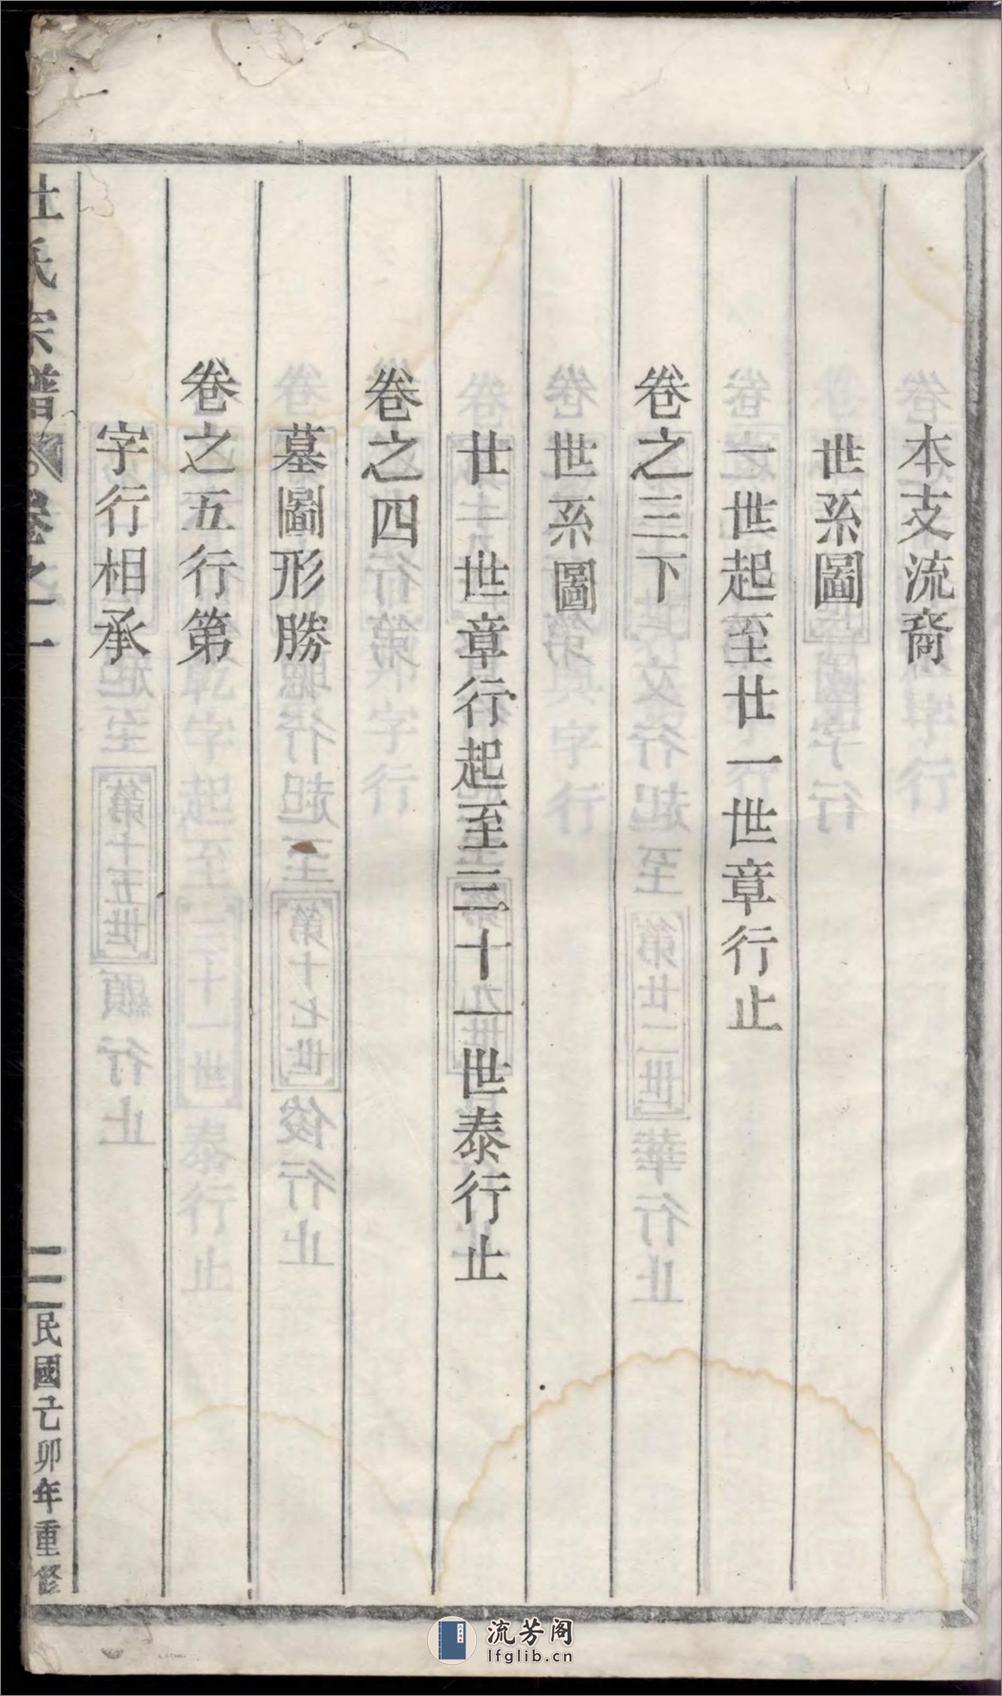 本支流裔
世系圖
一世起至廿一世章行止
卷之三下
世系圖
廿一世章行起至三十一世泰行止
卷之四
墓圖形勝
卷之五行第
字行相承
杜氏宗譜
卷之一
二
民國己卯年重修
流芳阁
lfglib.cn